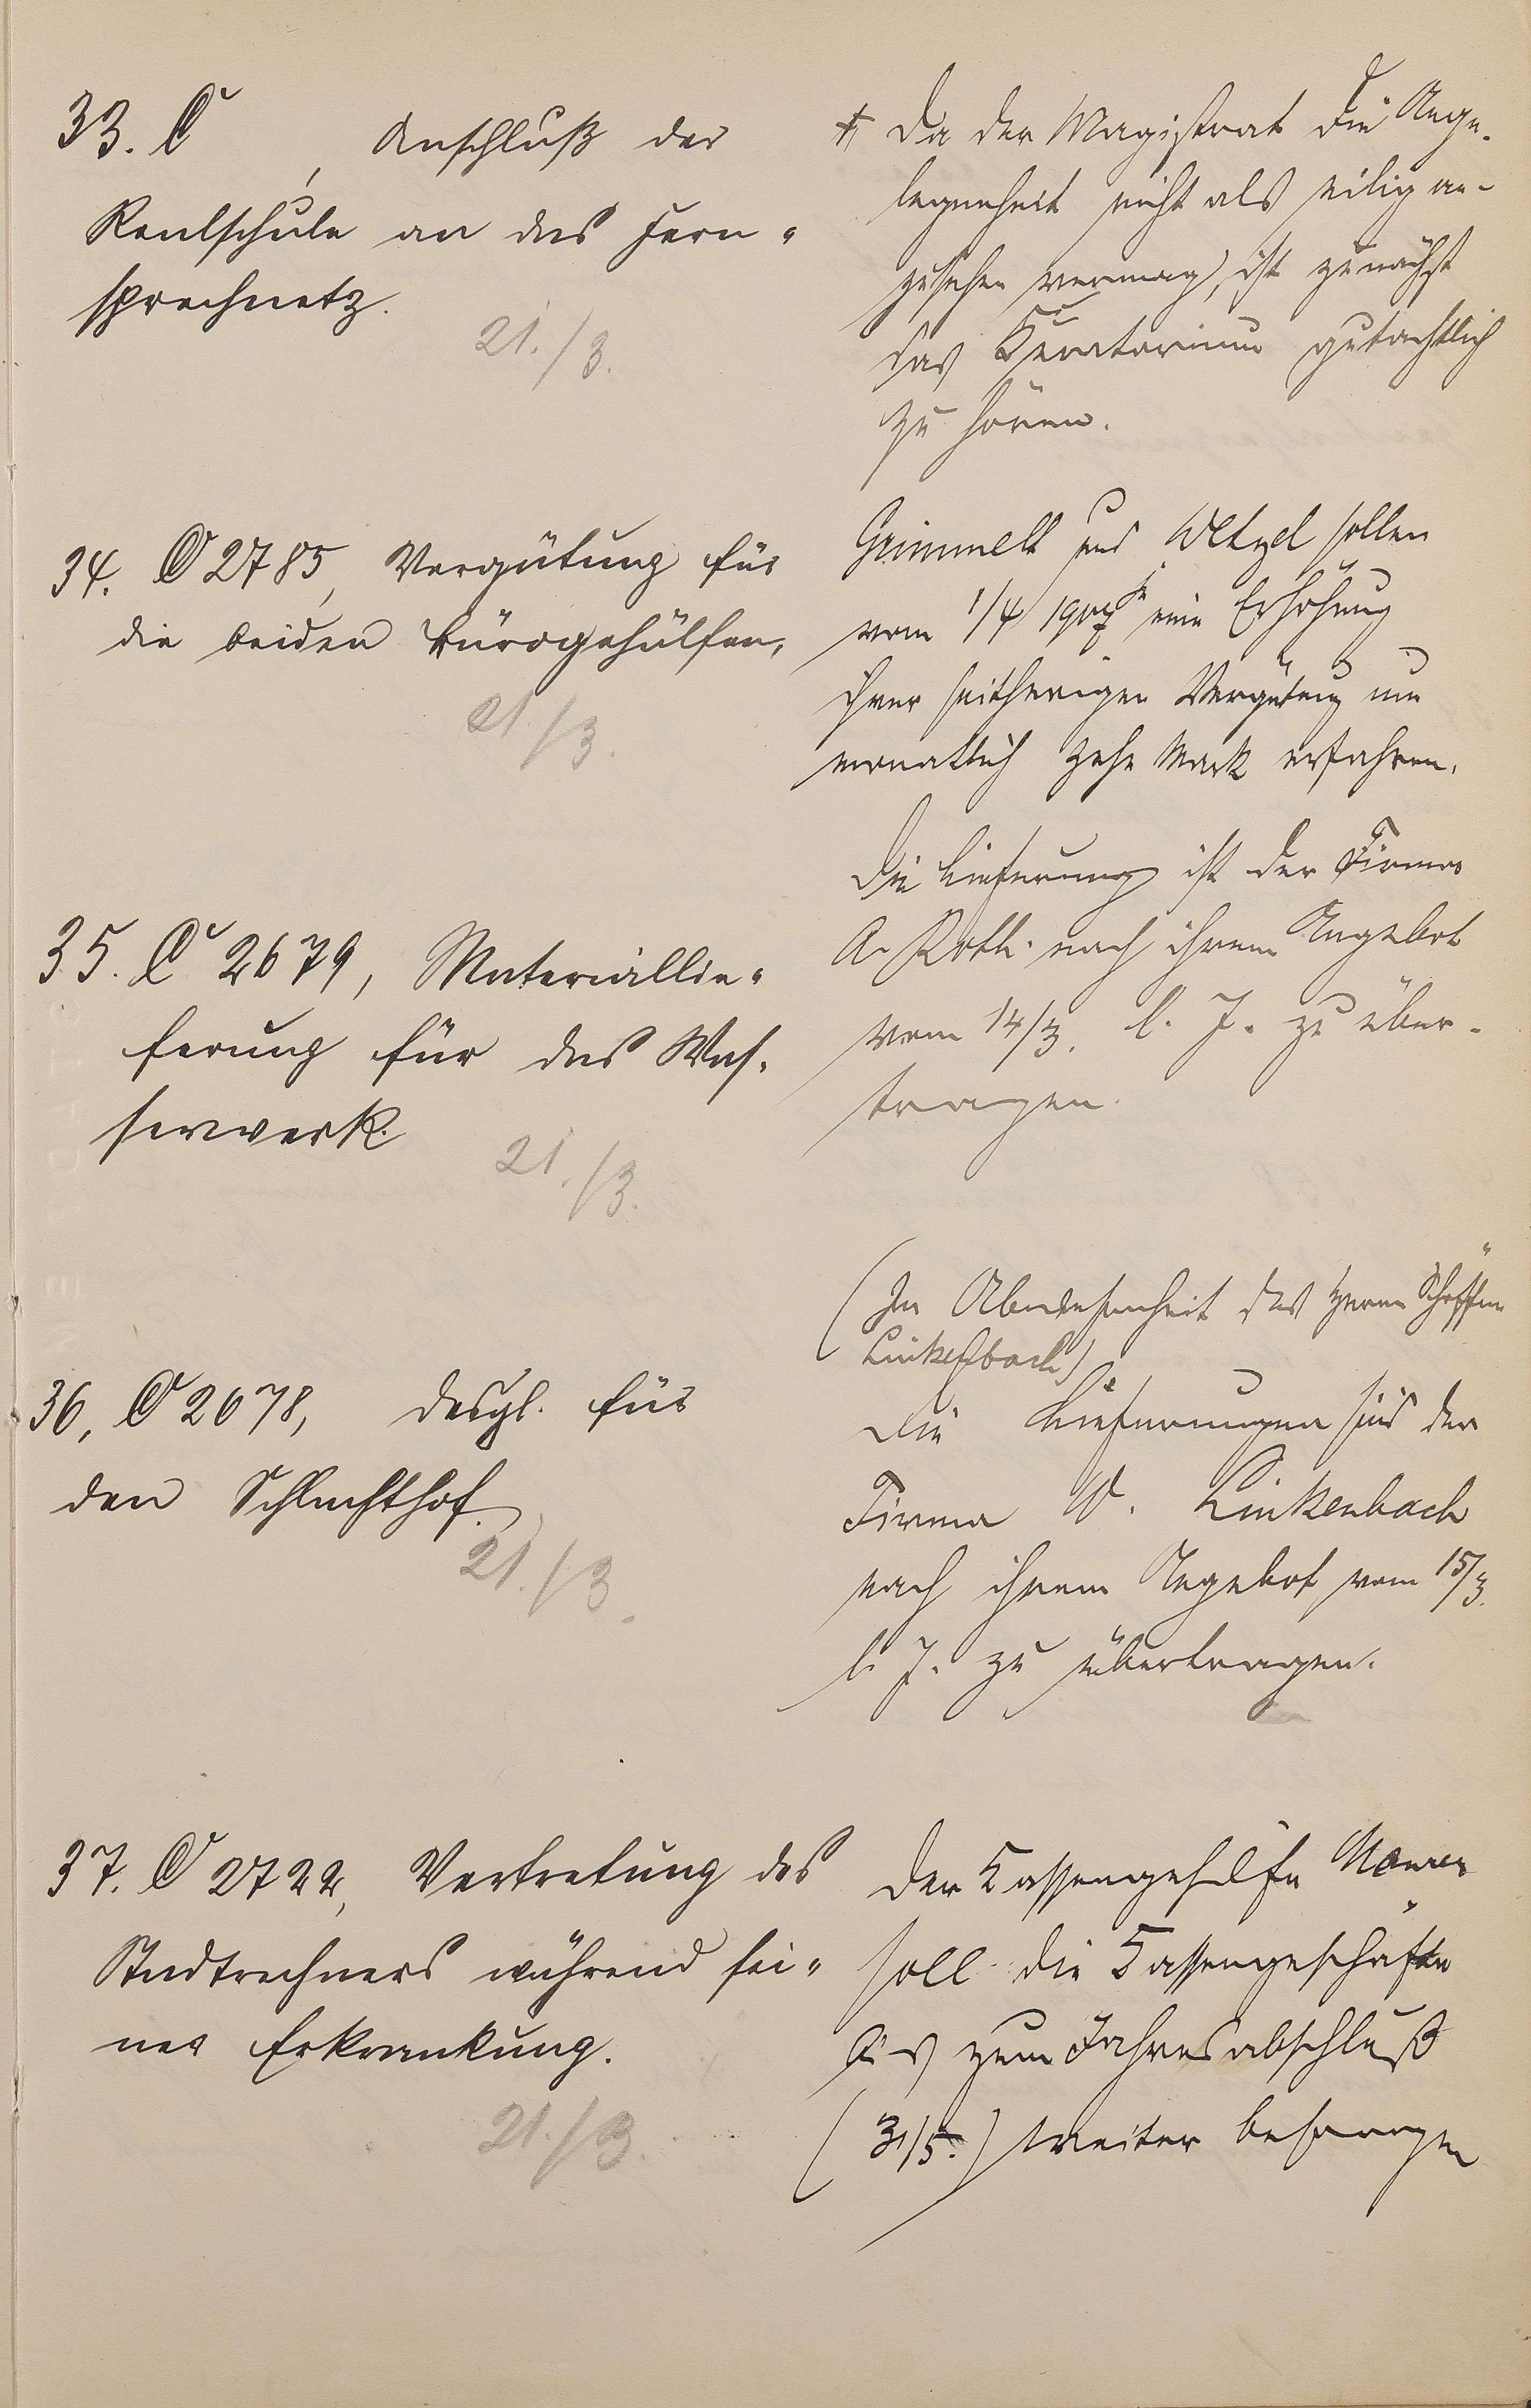 33. C , Anschluß der
Realschule an das Fern-
sprechnetz.
21./3.
Da der Magistrat die Ange-
legenheit nicht als eilig an-
zusehen vermag, ist zunächst
das Kuratorium gutachtlich
zu hören.
34. C 2785, Vergütung für
die beiden Bürogehülfen,
21./3.
Grimmell und Wetzel sollen
vom 1/4 1907 je eine Erhöhung
ihrer seitherigen Vergütung um
monatlich zehn Mark erfahren.
35. C 2679, Materiallie-
ferung für das Was-
serwerk.
21./3.
Die Lieferung ist der Firma
A. Roth nach ihrem Angebot
vom 14/3. l. J. zu über-
tragen.
36, C 2678, desgl. für
den Schlachthof.
21./3.
(In Abwesenheit des Herrn Schöffen
Linkenbach)
Die Lieferungen sind der
Firma W. Linkenbach
nach ihrem Angebot vom 15/3.
l. J. zu übertragen.
37. C 2722, Vertretung des
Stadtrechners während sei-
ner Erkrankung.
21./3.
Der Kassengehilfe Maurer
soll die Kassengeschäfte
bis zum Jahresabschluß
(31/5.) weiter besorgen